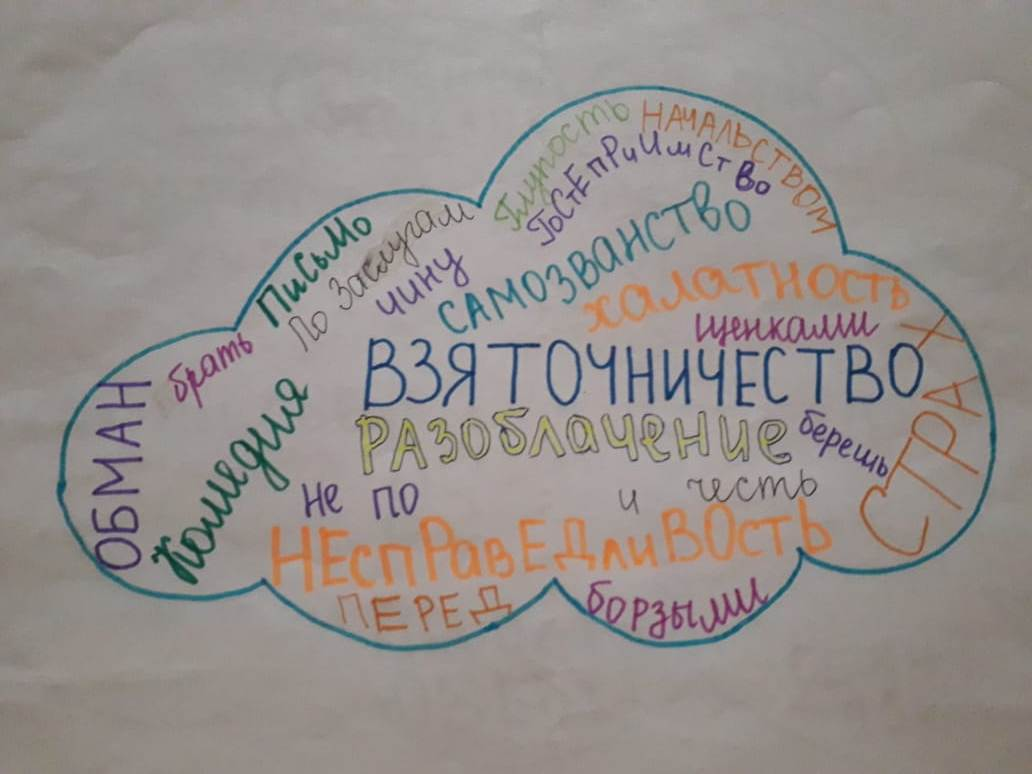 Глупость
НАЧАЛЬСТВОМ
ГоСтЕПРиИмСтВо
ПиСьМо
По Заслугам
чину
САМОЗВАНСТВО
халатность
щенками
брать
ВЗЯТОЧНИЧЕСТВО
СТРАХ
ОБМАН
Комедия
РАЗОБлАЧЕНИЕ
берешь
не по
и честь
НЕспРавЕДлиВОстЬ
ПЕРЕД
борзыми